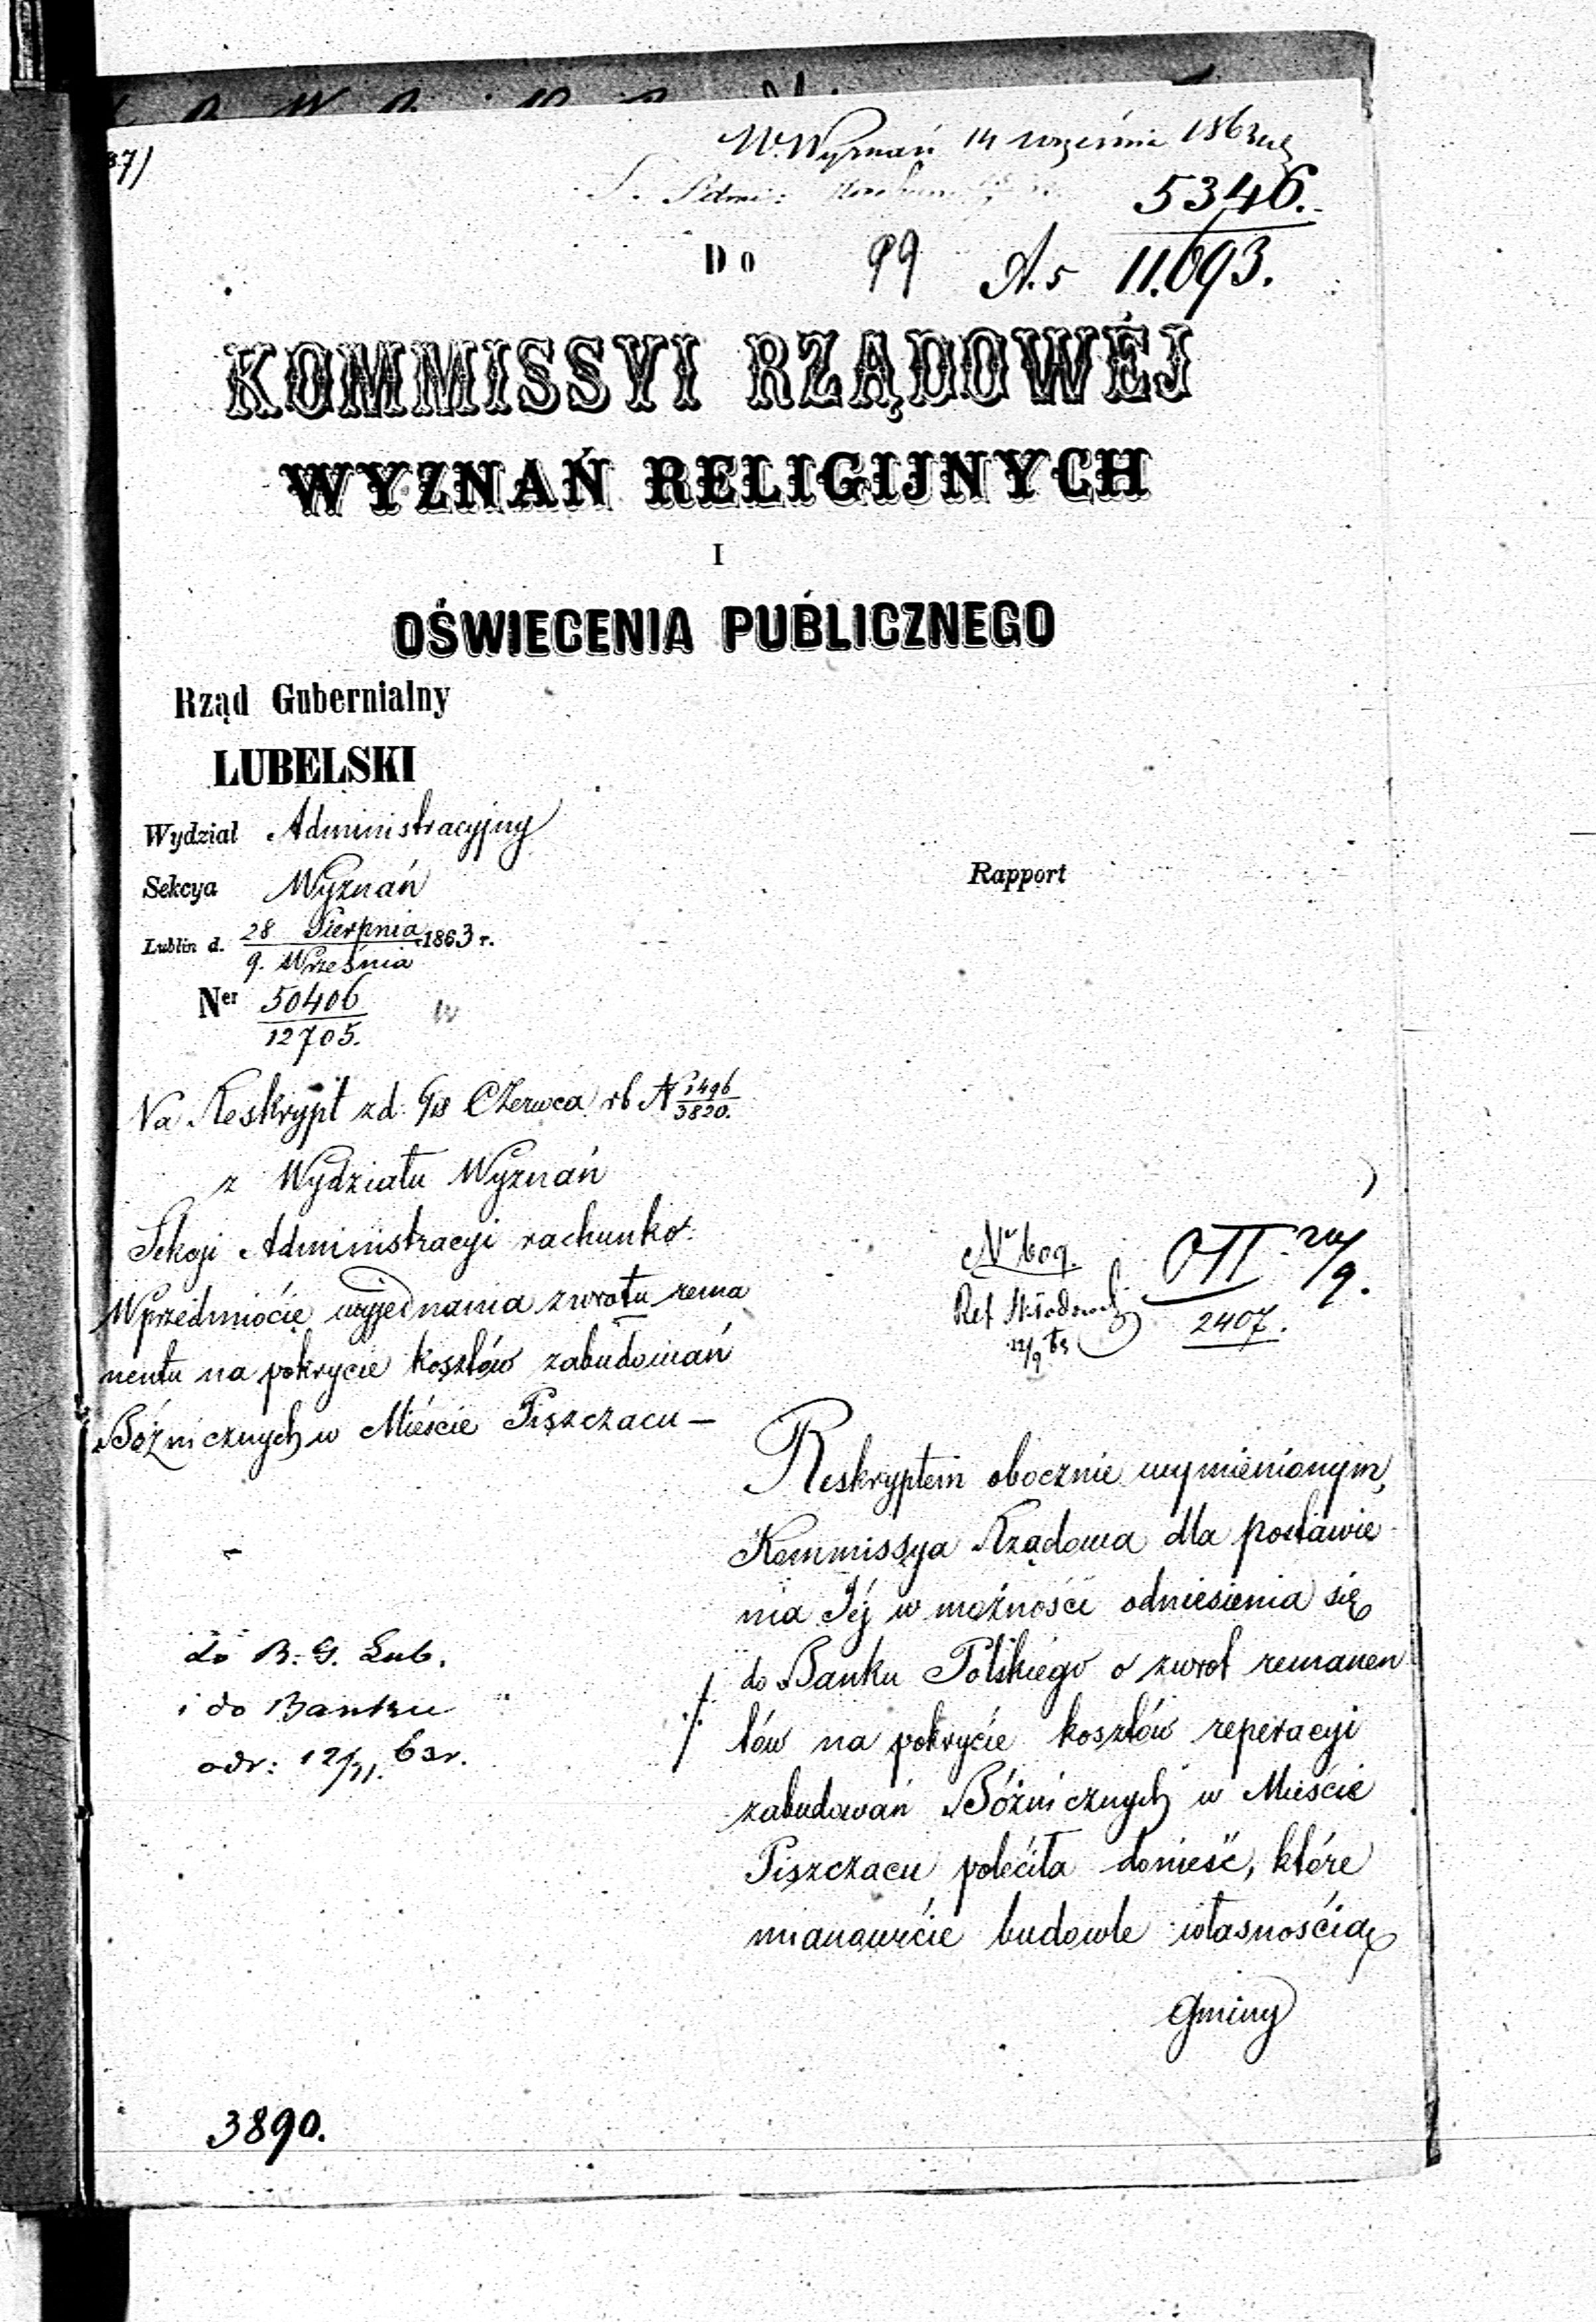 W. Wyznań 14 września 1863
5346.
Do 99 A. 5 11.693.
KOMMISSYI RZĄDOWÉJ
WYZNAŃ RELIGIJNYCH
I
OŚWIECENIA PUBLICZNEGO
Rząd Gubernialny
LUBELSKI
Wydział Administracyjny
Sekcya Wyznań
Rapport
Lublin d. 28 Sierpnia / 9. Września 1863 r.
Ner 50406 / 12705.
Na Reskrypt z d. 6/18 Czerwca rb N 1496 / 3820.
z Wydziału Wyznań
Sekcji Administracyi rachunko:
W przedmiocie wyjednania zwrotu rema
nentu na pokrycie kosztów zabudowań
Bóżnicznych w Mieście Piszczacu —
No 609.
2407.
Reskryptem obocznie wymienionym,
Kommissya Rządowa dla postawie
nia Jéj w możności odniesienia się
do Banku Polskiego o zwrot remanen
tów na pokrycie kosztów reperacyi
zabudowań Bóżnicznych w Mieście
Piszczacu poleciła donieść, które
mianowicie budowle własnością
Gminy
do R. G. Lub.
i do Banku
odr: 12/11. 63 r.
3890.